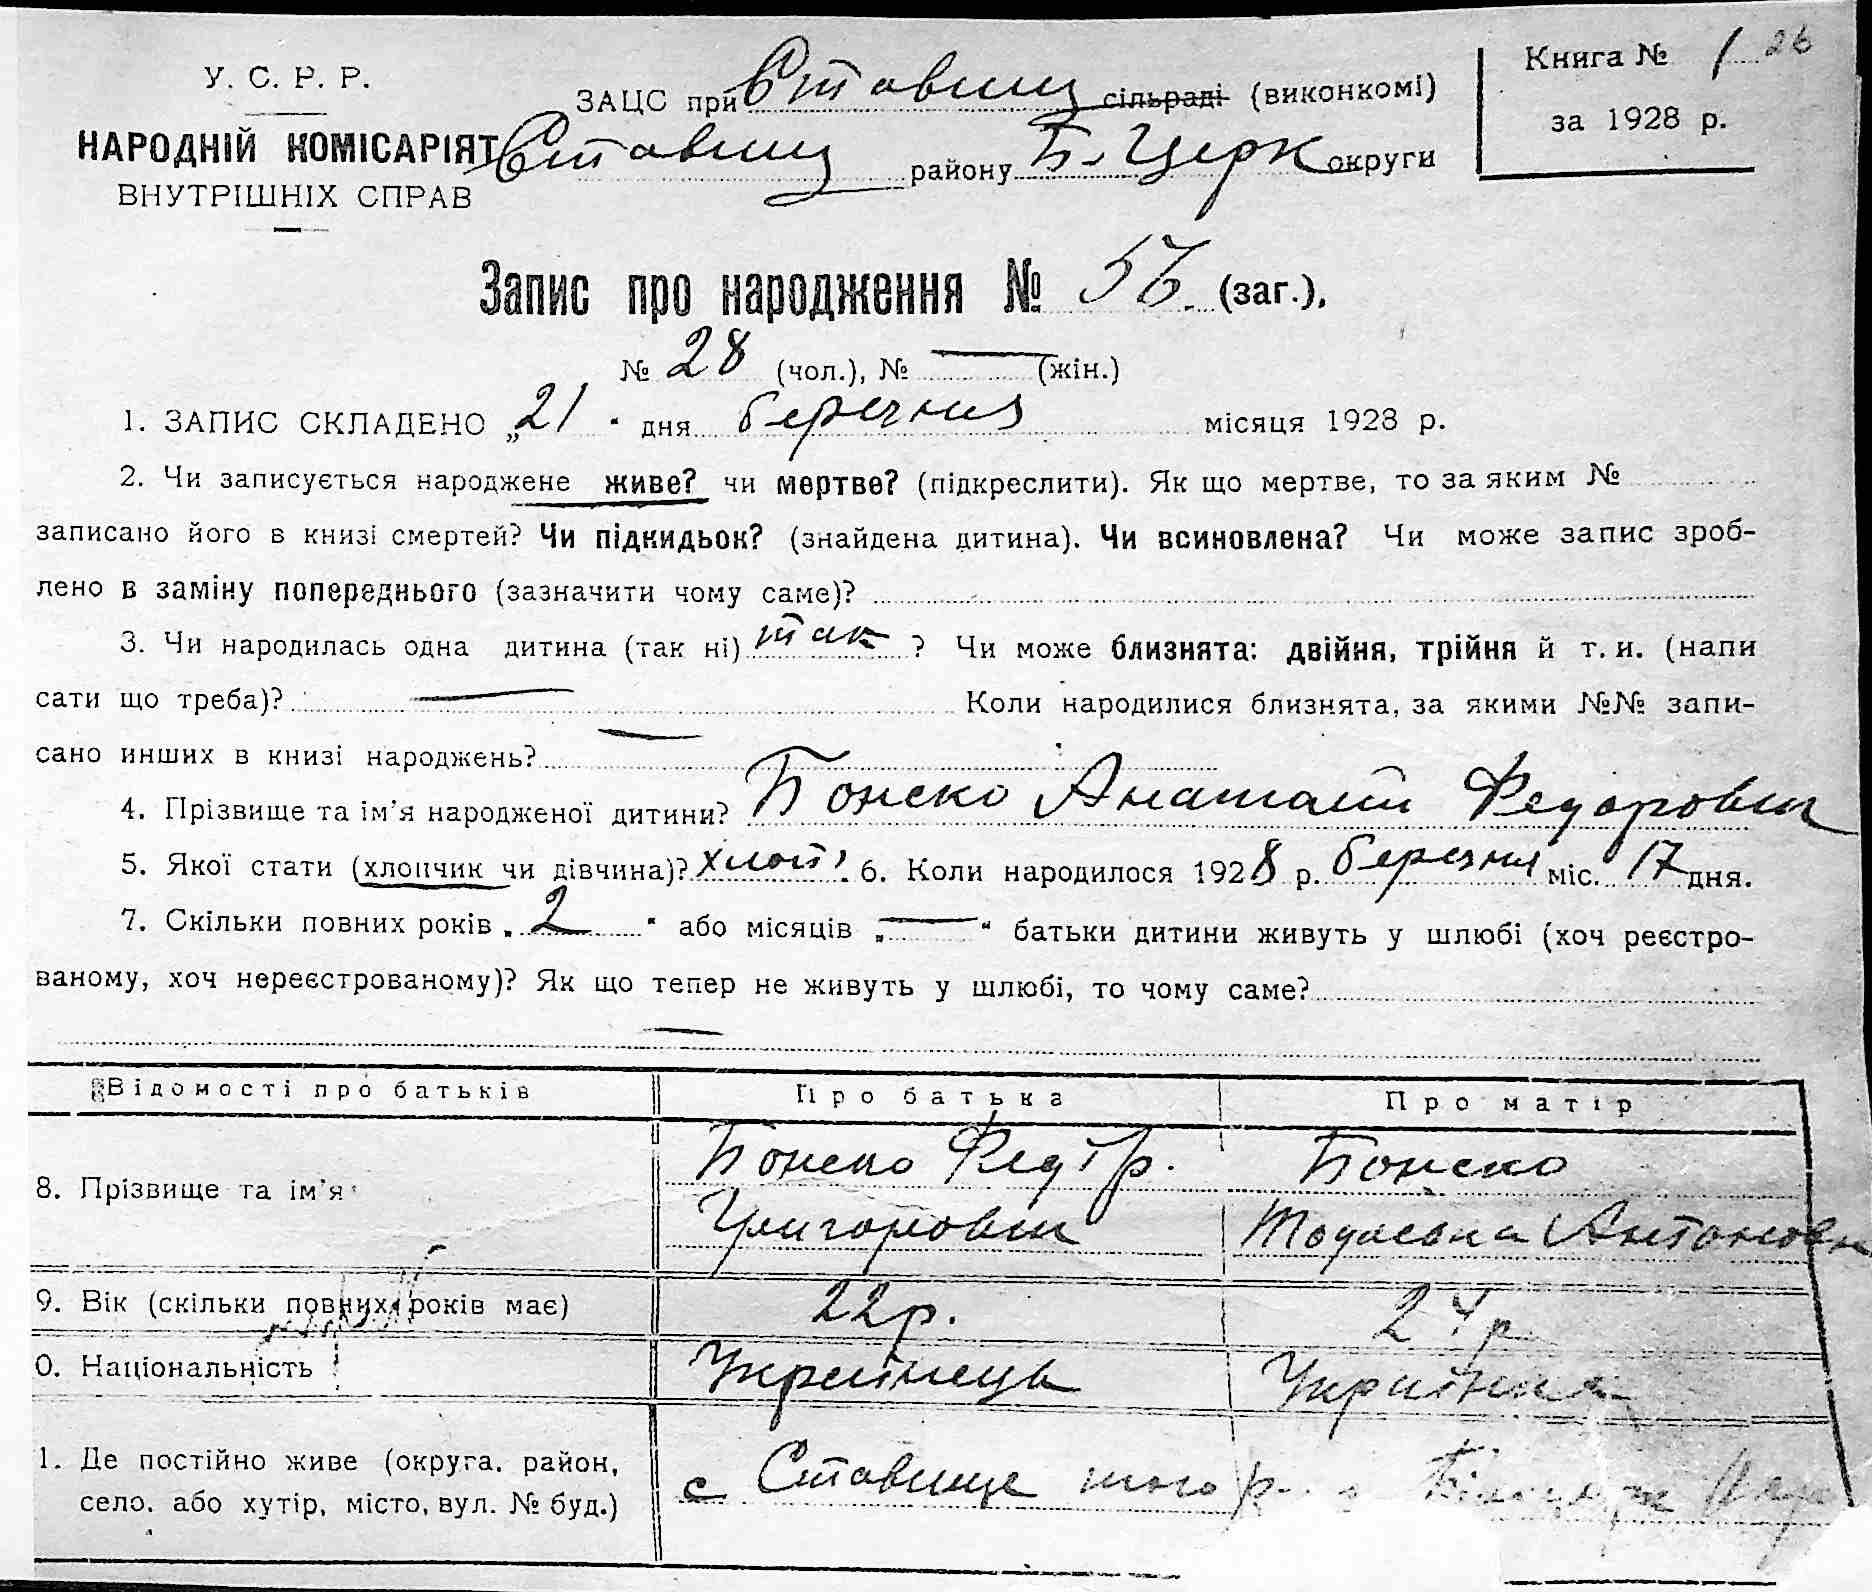 У. С. Р. Р.
НАРОДНІЙ КОМІСАРІЯТ
ВНУТРІШНІХ СПРАВ
ЗАЦС при Ставищ сільраді (виконкомі)
Ставищ району Б-Церк округи
Книга № 1 26
за 1928 р.
Запис про народження № 56 (заг.),
№ 28 (чол.), № — (жін.)
1. ЗАПИС СКЛАДЕНО „21" дня березня місяця 1928 р.
2. Чи записується народжене живе? чи мертве? (підкреслити). Як що мертве, то за яким №
записано його в книзі смертей? Чи підкидьок? (знайдена дитина). Чи всиновлена? Чи може запис зроб-
лено в заміну попереднього (зазначити чому саме)?
3. Чи народилась одна дитина (так ні) так ? Чи може близнята: двійня, трійня й т. и. (напи
сати що треба)? — Коли народилися близнята, за якими №№ запи-
сано инших в книзі народжень? —
4. Прізвище та ім'я народженої дитини? Бонско Анатолій Федорович
5. Якої стати (хлопчик чи дівчина)? хлоп. 6. Коли народилося 1928 р. березня міс. 17 дня.
7. Скільки повних років „2" або місяців „—" батьки дитини живуть у шлюбі (хоч реєстро-
ваному, хоч нереєстрованому)? Як що тепер не живуть у шлюбі, то чому саме?
—
Відомості про батьків Про батька Про матір
8. Прізвище та ім'я Бонско Федір. Бонско
Григорович Антоновн
9. Вік (скільки повних років має) 22р. 24р
0. Національність Українець Українка
1. Де постійно живе (округа, район, с Ставище того р.
село, або хутір, місто, вул. № буд.)